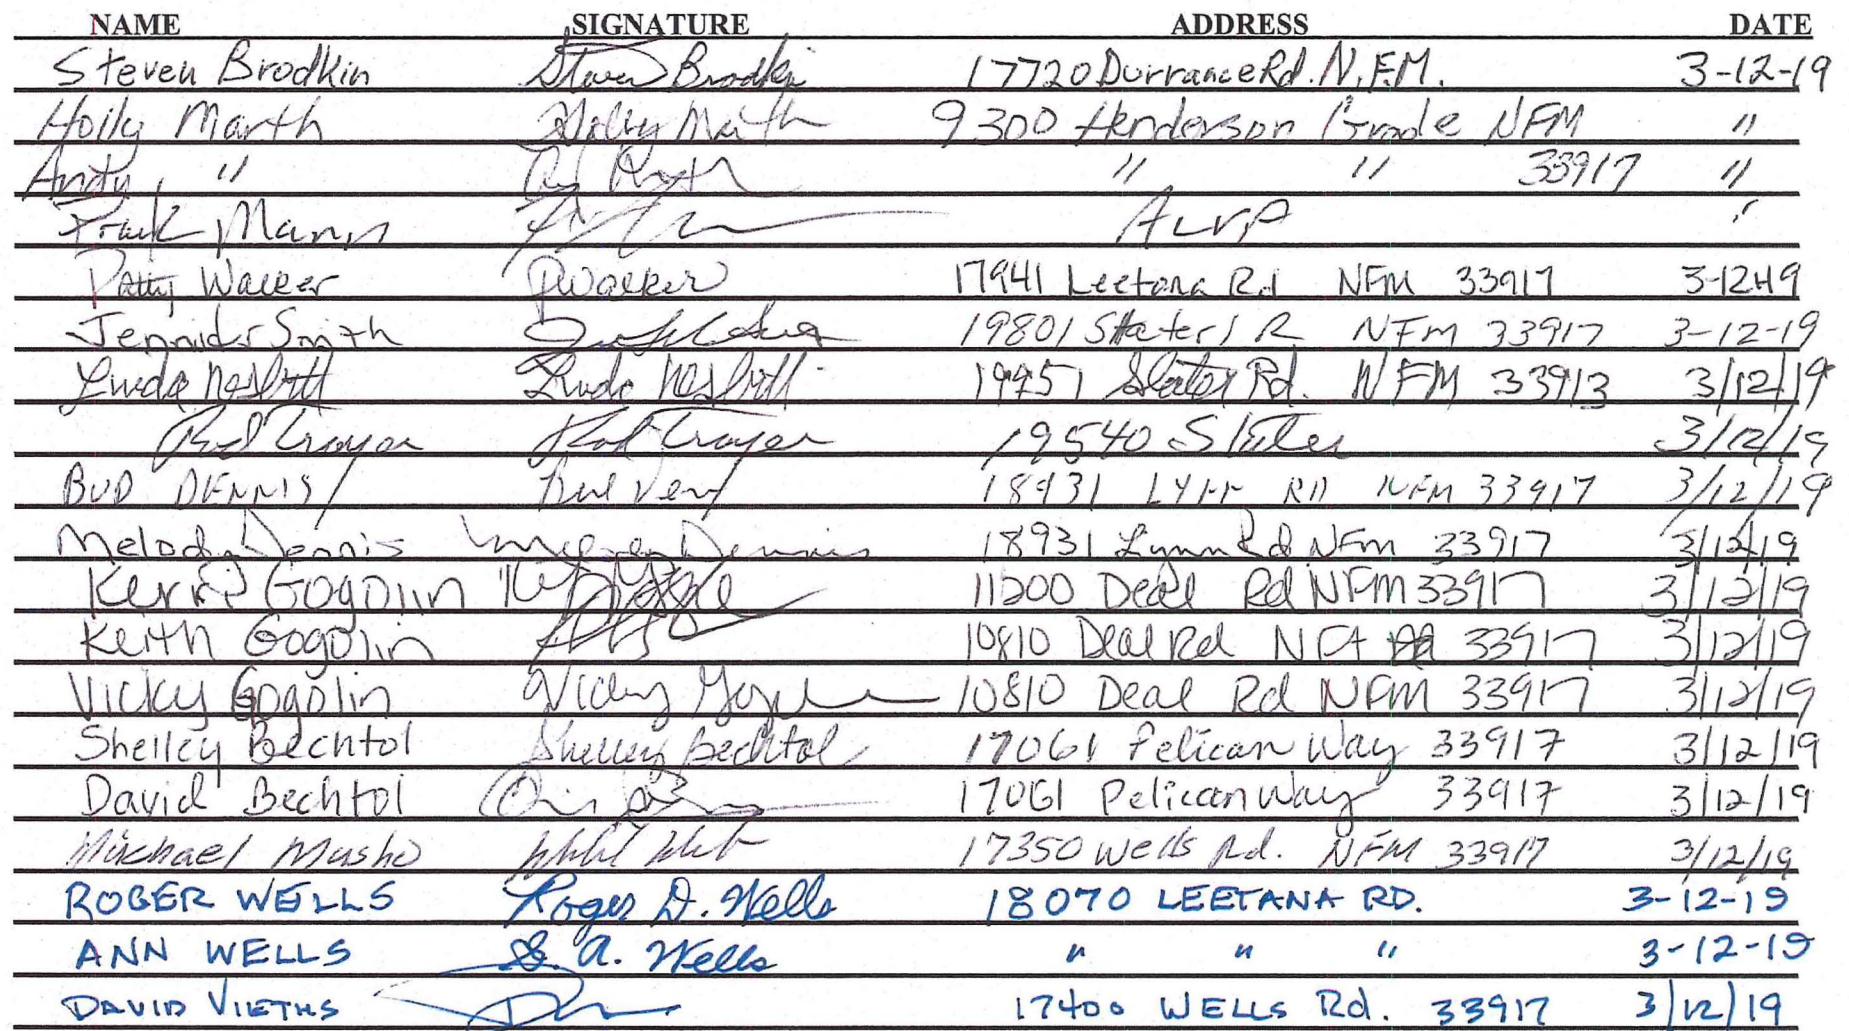 NAME SIGNATURE ADDRESS DATE
Steven Brodkin Steven Brodkin 17720 Durrance Rd. N.F.M. 3-12-19
Holly Marth Holly Marth 9300 Henderson Grade NFM "
Andy " " " 33917 "
Frank Mann Alva "
Patty Walker PWalker 17941 Leetana Rd NFM 33917 3-12-19
Jennifer Smith 19801 Slater NFM 33917 3-12-19
Linda Nesbitt Linda Nesbitt 19951 Slater Rd. NFM 33913 3/12/19
Rod Troyer Rod Troyer 19540 Slater 3/12/19
BUD DENNIS 18931 LYNN RD NFM 33917 3/12/19
Melody Dennis Dennis 18931 Lynn Rd NFM 33917 3/12/19
Kerri Gogolin 11200 Deal Rd NFM 33917 3/12/19
Keith Gogolin 10810 Deal Rd 33917 3/12/19
Vicky Gogolin Vicky 10810 Deal Rd NFM 33917 3/12/19
Shelley Bechtol Shelley Bechtol 17061 Pelican Way 33917 3/12/19
David Bechtol 17061 Pelican Way 33917 3/12/19
Michael Musho 17350 Wells Rd. NFM 33917 3/12/19
ROGER WELLS Roger D. Wells 18070 LEETANA RD. 3-12-19
ANN WELLS S. A. Wells " " " 3-12-19
DAVID VIETHS 17400 WELLS Rd. 33917 3/12/19